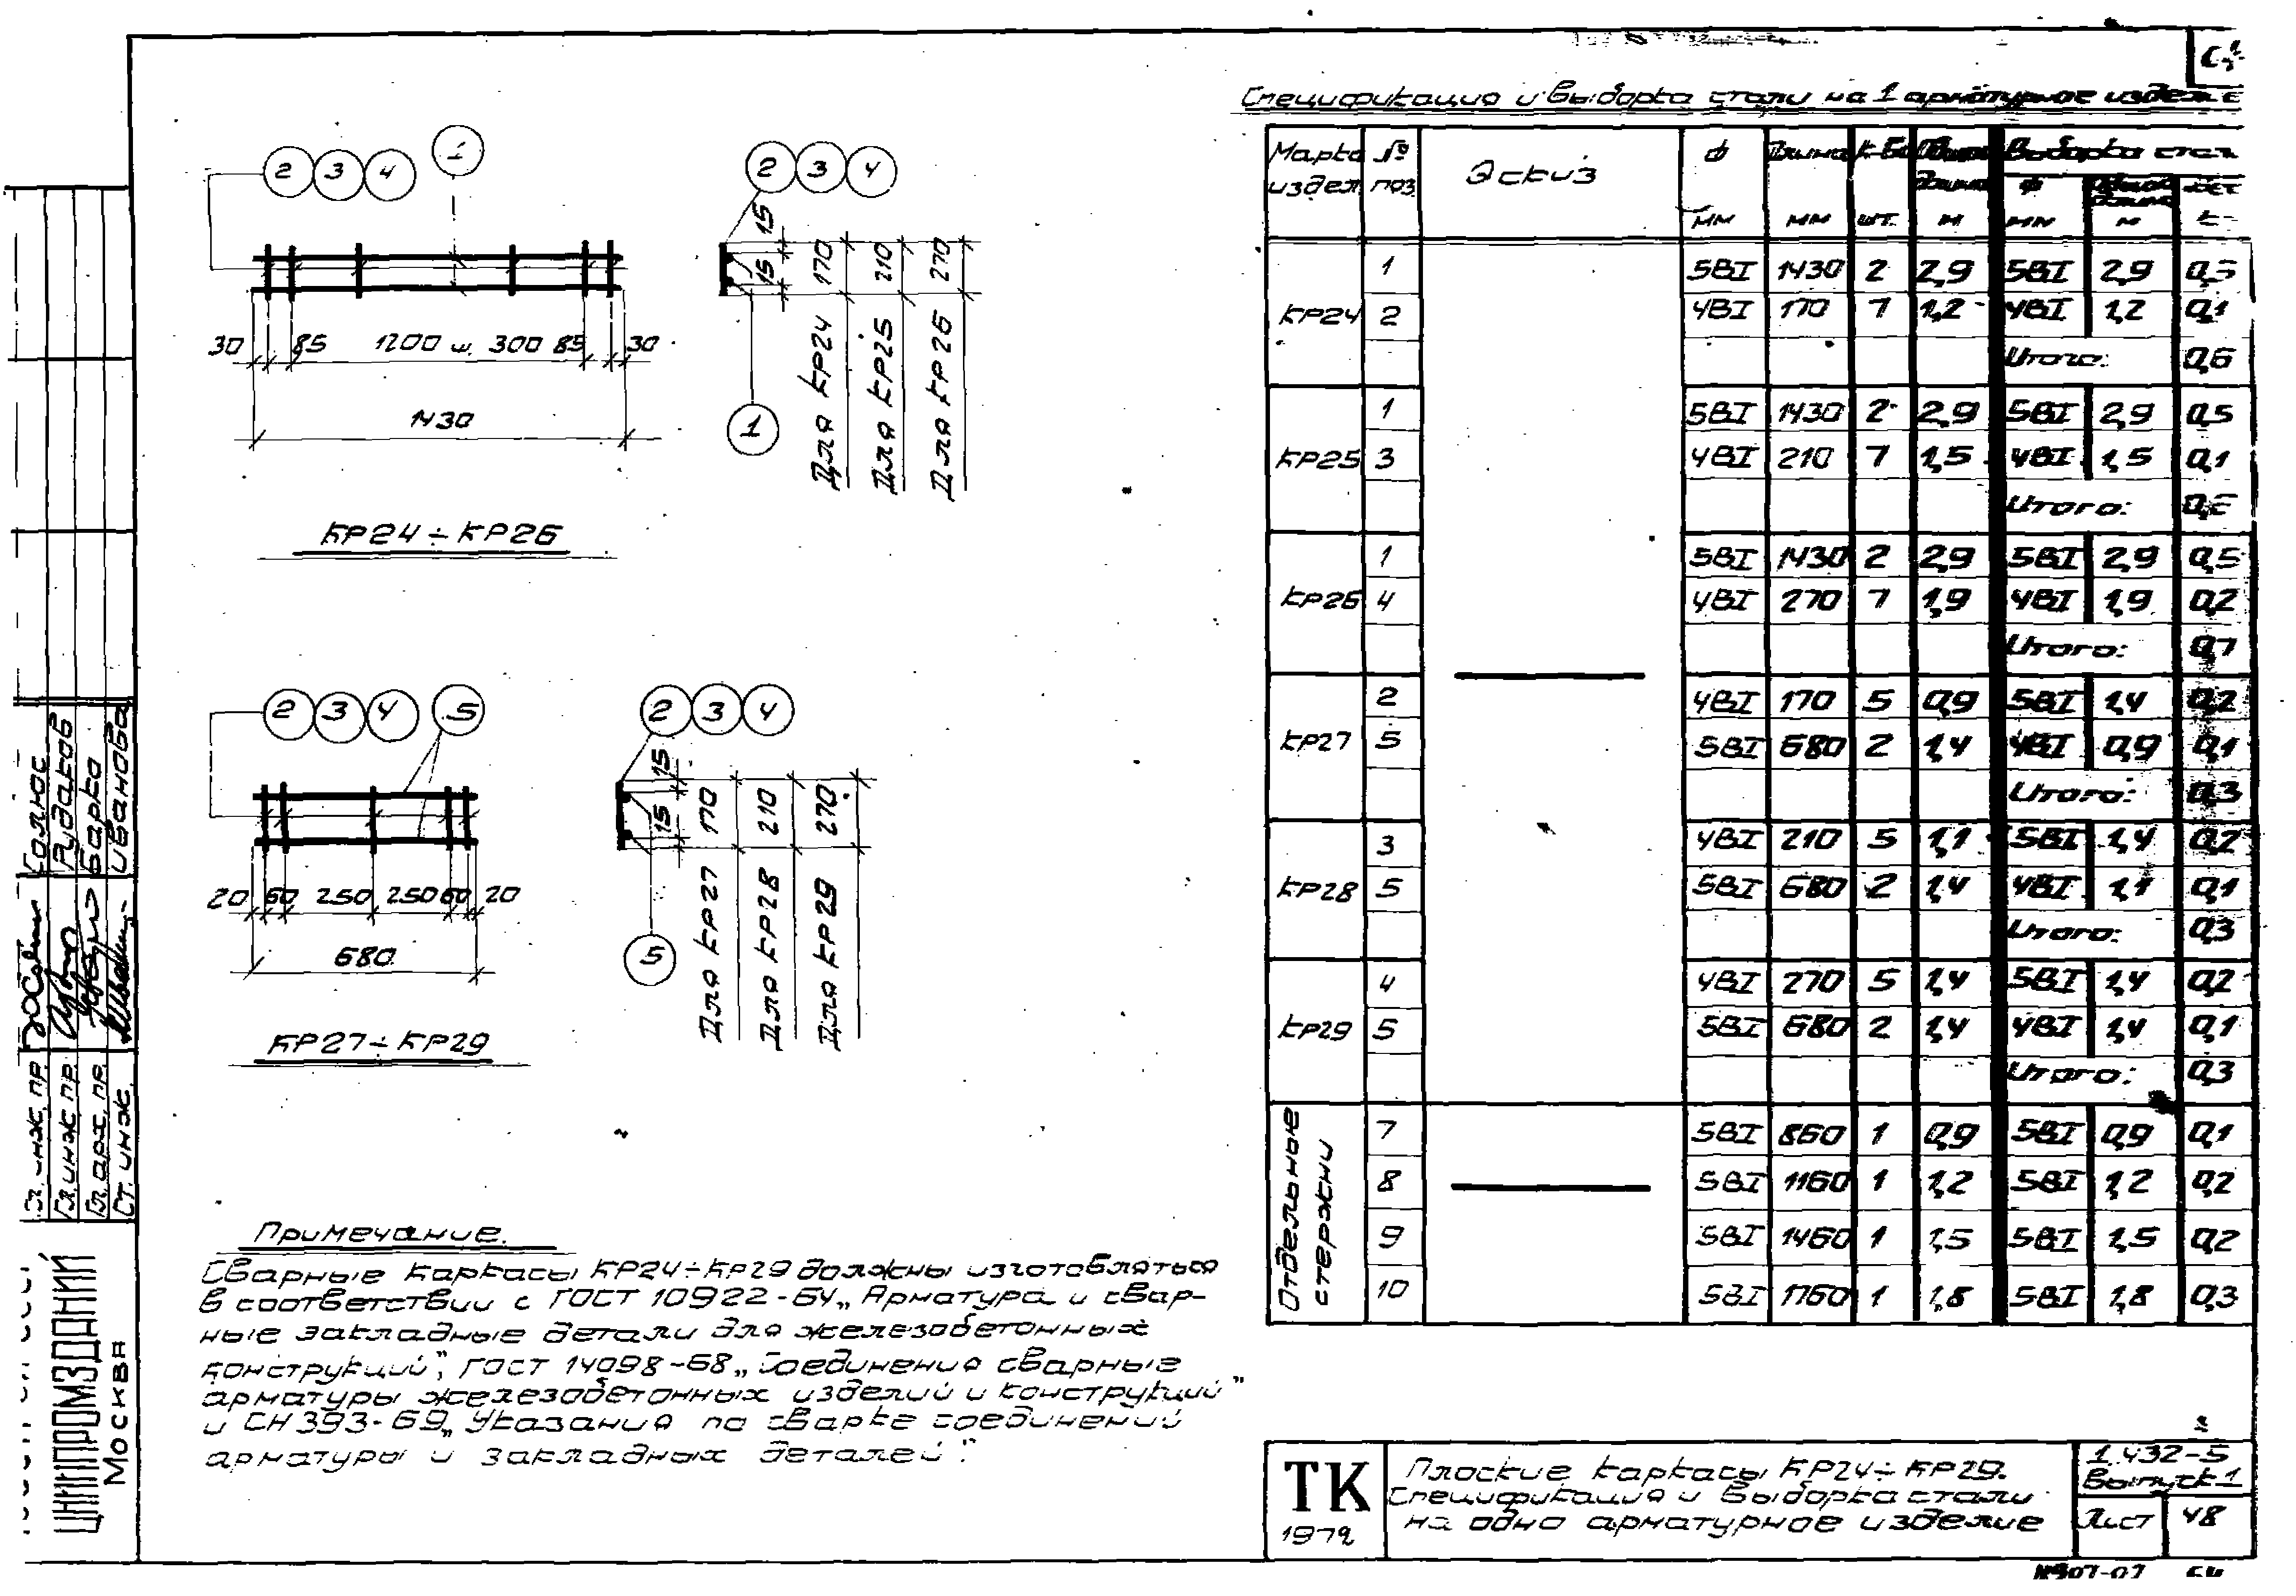 Спецификация и выборка стали на 1 арматурное изделие
2 3 4 1
2 3 4
15
15
170 210 270
Для КР24
Для КР25
Для КР26
30 85 1200 ш. 300 85 30
1430
1
КР24÷КР26
2 3 4 5
2 3 4
15
15
170 210 270
Для КР27
Для КР28
Для КР29
20 60 250 250 60 20
680
5
КР27÷КР29
Примечание.
Сварные каркасы КР24÷КР29 должны изготовляться
в соответствии с ГОСТ 10922-64 „Арматура и свар-
ные закладные детали для железобетонных
конструкций", ГОСТ 14098-68 „Соединения сварные
арматуры железобетонных изделий и конструкций"
и СН 393-69 „Указания по сварке соединений
арматуры и закладных деталей".
Марка издел. № поз Эскиз ф мм Длина мм К-во шт. Общая длина м Выборка стал
ф мм Общая длина м
КР24
1 5ВI 1430 2 2,9 5ВI 2,9 0,5
2 4ВI 170 7 1,2 4ВI 1,2 0,1
Итого: 0,6
КР25
1 5ВI 1430 2 2,9 5ВI 2,9 0,5
3 4ВI 210 7 1,5 4ВI 1,5 0,1
Итого: 0,6
КР26
1 5ВI 1430 2 2,9 5ВI 2,9 0,5
4 4ВI 270 7 1,9 4ВI 1,9 0,2
Итого: 0,7
КР27
2 4ВI 170 5 0,9 5ВI 1,4 0,2
5 5ВI 680 2 1,4 4ВI 0,9 0,1
Итого: 0,3
КР28
3 4ВI 210 5 1,1 5ВI 1,4 0,2
5 5ВI 680 2 1,4 4ВI 1,1 0,1
Итого: 0,3
КР29
4 4ВI 270 5 1,4 5ВI 1,4 0,2
5 5ВI 680 2 1,4 4ВI 1,4 0,1
Итого: 0,3
Отдельные стержни
7 5ВI 860 1 0,9 5ВI 0,9 0,1
8 5ВI 1160 1 1,2 5ВI 1,2 0,2
9 5ВI 1460 1 1,5 5ВI 1,5 0,2
10 5ВI 1760 1 1,8 5ВI 1,8 0,3
ТК
1972
Плоские каркасы КР24÷КР29.
Спецификация и выборка стали
на одно арматурное изделие
1.432-5
Выпуск 1
Лист 48
Гл. инж. пр.
Гл. инж. пр. Рудаков
Гл. арх. пр. Барка
Ст. инж. Иванова
ЦНИИПРОМЗДАНИЙ
Москва